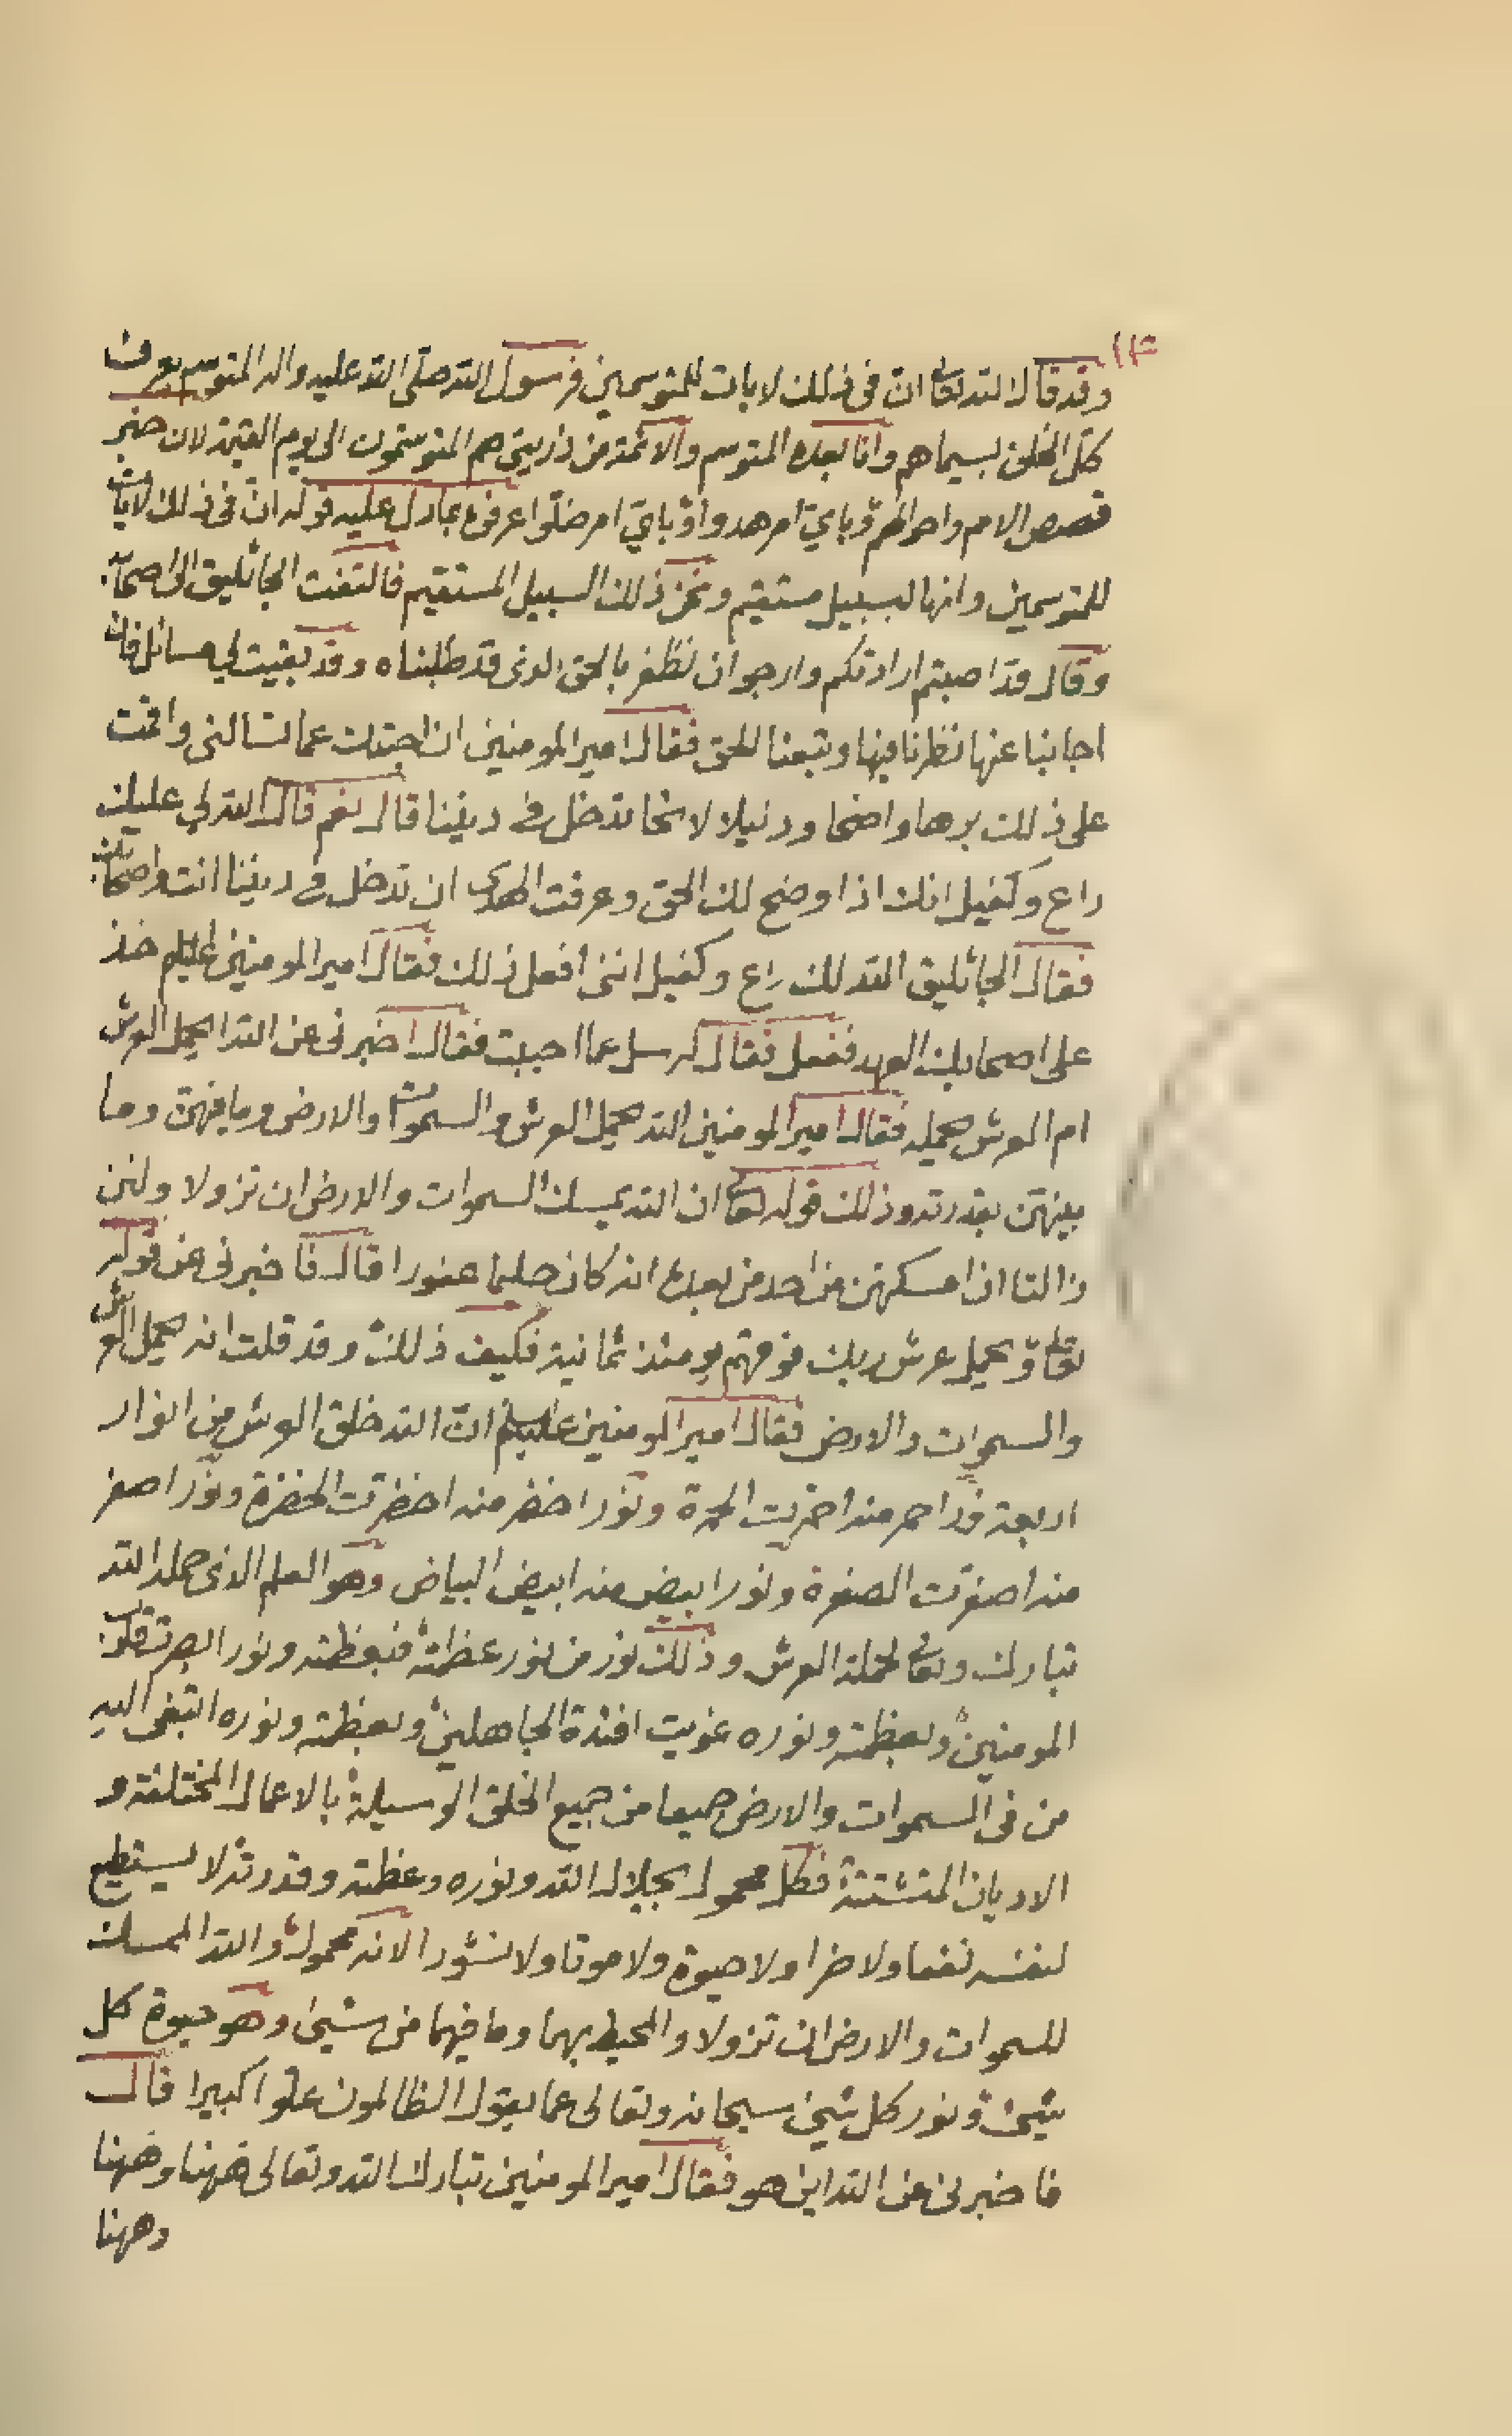 وقد قال الله تعالى ان فى ذلك لايات للمتوسمين فرسول الله صلى الله عليه واله المتوسم يعرف
كل الخلق بسيماهم وانا بعده المتوسم والائمة من ذريتى هم المتوسمون الى يوم القيمة لان خبر
قصص الامم واحوالهم وباي امر هدوا وباي امر ضلوا عرفوه بمادل عليه قوله ان فى ذلك لايات
للمتوسمين وانها لبسبيل مستقيم ونحن ذلك السبيل المستقيم فالتفت الجاثليق الى اصحابه
وقال قد اصبتم ارادتكم وارجو ان نظفر بالحق الذى قد طلبناه وقد بقيت لي مسائل فان
اجابنا عنها نظرنا فيها وتبعنا للحق فقال امير المومنين ان اجبتك عما تسالنى واقمت
على ذلك برها واضحا ودنيلا لائحا تدخل فى ديننا قال نعم قال الله لي عليك
راع وكفيل انك اذا وضح لك الحق وعرفت الهدى ان تدخل فى ديننا انت واصحابك
فقال الجاثليق الله لك راع وكفيل اننى افعل ذلك فقال امير المومنين عليه السلم خذ
على اصحابك العهد ففعل فقال له سل عما احببت فقال اخبرنى عن الله ايحمل العرش
ام العرش يحمله فقال امير المومنين الله يحمل العرش والسموات والارض وما فيهن وما
بينهن بقدرته وذلك قوله تعالى ان الله يمسك السموات والارض ان تزولا ولئن
زالتا ان امسكهن من احد من بعده انه كان حليما غفورا قال فاخبرنى عن قوله
تعالى ويحمل عرش ربك فوقهم يومئذ ثمانية فكيف ذلك وقد قلت انه يحمل العرش
والسموات والارض فقال امير المومنين عليه السلم ان الله خلق العرش من انوار
اربعة نور احمر منه احمرت الحمرة ونور اخضر منه اخضرت الخضرة ونور اصفر
منه اصفرت الصفرة ونور ابيض منه ابيض البياض وهو العلم الذى حمله الله
تبارك وتعالى لحملة العرش وذلك نور من نور عظمته فبعظمته ونور ابصرت قلوب
المومنين وبعظمته ونوره غويت افئدة الجاهلين وبعظمته ونوره ابتغى اليه
من فى السموات والارض جميعا من جميع الخلق الوسيلة بالاعمال المختلفة و
الاديان المتشتتة فكل محمول بجلال الله ونوره وعظمته وقدرته لا يستطيع
لنفسه نفعا ولا ضرا ولا حيوة ولا موتا ولا نشورا لانه محمول والله الممسك
للسموات والارض ان تزولا والمحيط بهما وما فيهما من شيئ وهو حيوة كل
شيئ ونور كل شيئ سبحانه وتعالى عما يقول الظالمون علوا كبيرا قال
فاخبرنى عن الله اين هو فقال امير المومنين تبارك الله وتعالى ههنا وههنا
وههنا